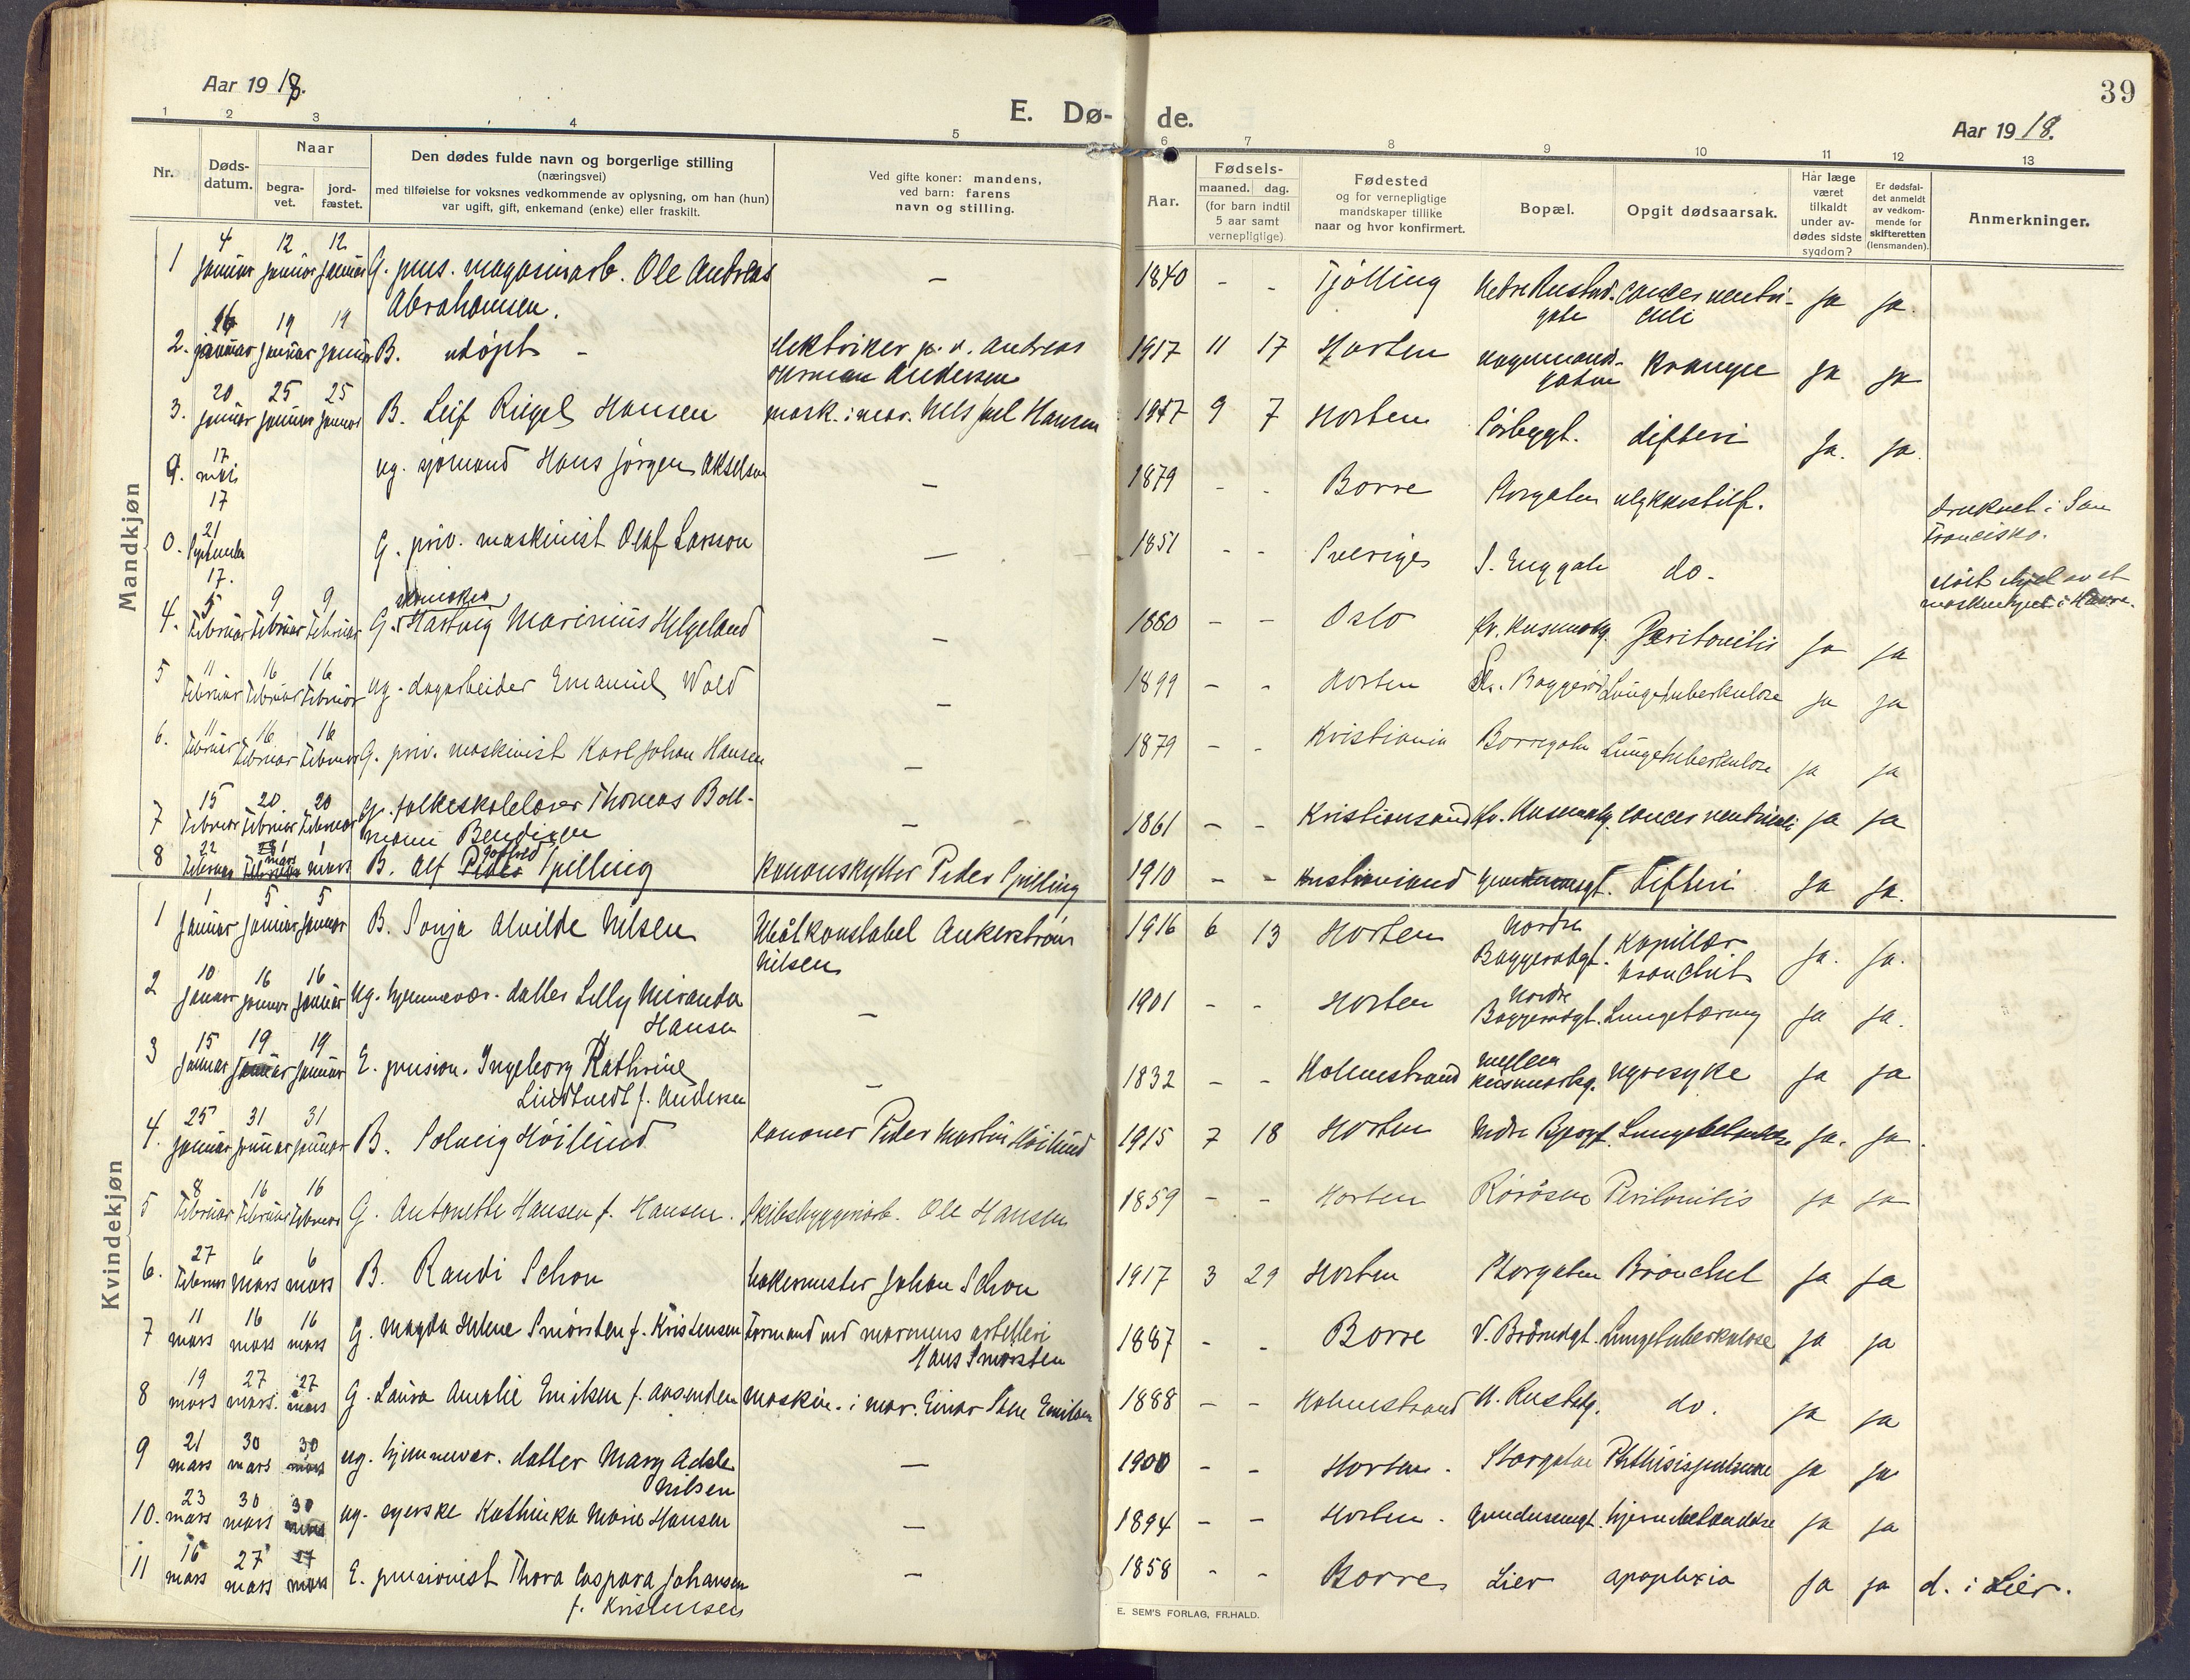 Aar 1918.
E. Dø-
de.
39
Aar 1918.
1 2 3 4 5 6 7 8 9 10 11 12 13
Nr.
Døds-
datum.
Naar
begra-
vet.
jord-
fæstet.
Den dødes fulde navn og borgerlige stilling
(næringsvei)
med tilføielse for voksnes vedkommende av oplysning, om han (hun)
var ugift, gift, enkemand (enke) eller fraskilt.
Ved gifte koner: mandens,
ved barn: farens
navn og stilling.
Aar.
Fødsels-
maaned. dag.
(for barn indtil
5 aar samt
vernepligtige).
Fødested
og for vernepligtige
mandskaper tillike
naar og hvor konfirmert.
Bopæl.
Opgit dødsaarsak.
Har læge
været
tilkaldt
under av-
dødes sidste
sygdom?
Er dødsfal-
det anmeldt
av vedkom-
mende for
skifteretten
(lensmanden).
Anmerkninger.
Mandkjøn
1 4 januar 12 januar 12 januar G. pens. magasinarb. Ole Andreas
Abrahamsen. — 1840 - - Tjölling Nedre Rustad. gate cancer ventri-
culi ja ja.
2. 16 januar 19 januar 19 januar B. udøpt - elektriker p. v. Andreas
Herman Andersen 1917 11 17 Horten Vognmands-
gaten Krampe ja ja
3. 20 januar 25 januar 25 januar B. Leif Rigel Hansen mask. i mar. Nils Juel Hansen 1917 9 7 Horten difteri ja. ja.
9. 17 mai 17 ug. sjömand Hans Jørgen Akselsen — 1879 - - Borre Storgaten ulykkestilf. druknet i San
Francisko.
0. 21 September 17. G. priv. maskinist Olaf Larsson — 1851 - - Sveriges S. Enggate do.
4. 5 Februar 9 Februar 9 Februar G. skomaker Hartvig Marinius Helgeland — 1880 - - Oslo Peritonitis ja ja
5 11 Februar 16 Februar 16 Februar ug. dagarbeider Emanuel Wold — 1899 - - Horten Lungetuberkulose ja ja
6. 11 Februar 16 Februar 16 Februar G. priv. maskinist Karl Johan Hansen — 1879 - - Kristiania Borregaten Lungetuberkulose ja ja
7 15 Februar 20. Februar 20 Februar G. folkeskolelærer Thomas Boll-
mann Bendixen — 1861 - - Kristiansand cancer ventriculi ja ja
8 22 Februar 1 mars 1 mars B. Alf Gotfred Spilling Kanonskytter Peder Spilling 1910 - - Kristiansand Difteri ja ja.
Kvindekjøn
1 1 januar 5 januar 5 januar B. Sonja Alvilde Nilsen Ubåtkonstabel Ankerström
Nilsen 1916 6 13 Horten Nordre
Baggerødgt. Kapillær
bronchit ja. ja.
2 10 januar 16 januar 16 januar ug. hjemmevær. datter Lilly Miranda
Hansen — 1901 - - Horten Nordre
Baggerødgt. Lungetæring ja ja.
3 15 januar 19 januar 19 januar E. pension. Ingeborg Kathrine
Lindtvedt f. Andersen — 1832 - - Holmestrand Mellem nyresyke ja ja
4. 25 januar 31 januar 31 januar B. Solveig Höilund Kanoner Peder Martin Höilund 1915 7 18 Horten ja. ja.
5 8 Februar 16 Februar 16 Februar G. Antonette Hansen f. Hansen. skibsbyggerarb. Ole Hansen 1859 - - Horten Rörösen Peritonitis ja ja
6. 27 Februar 6 mars 6 mars B. Randi Schou bakermester Johan Schou 1917 3 29 Horten Storgaten Bronchit ja ja
7 11 mars 16 mars 16 mars G. Magda Helene Smörsten f. Kristensen Formand ved marinens artilleri
Hans Smörsten 1887 - - Borre V. Bröndgt. Lungetuberkulose ja ja
8 19 mars 27 mars 27 mars G. Laura Amalie Emilsen f. Aasenden maskin. i mar. Einar Emilsen 1888 - - Holmestrand N. Rustadg. do. ja ja
9 21 mars 30 mars 30 mars ug. hjemmevær. datter Mary Adele
Nilsen — 1900 - - Horten. Storgaten Phthisis pulmon ja ja
10. 23 mars 30 mars 30 mars ug. syerske Kathinka Marie Hansen — 1894 - - Horten. hjernebetændelse ja ja
11 16 mars 27 mars 27 mars E. pensionist Thora Caspara Johansen
f. Kristensen — 1858 - - Borre Lier apoplexia ja ja d. i Lier.
E. SEM'S FORLAG, FR.HALD.